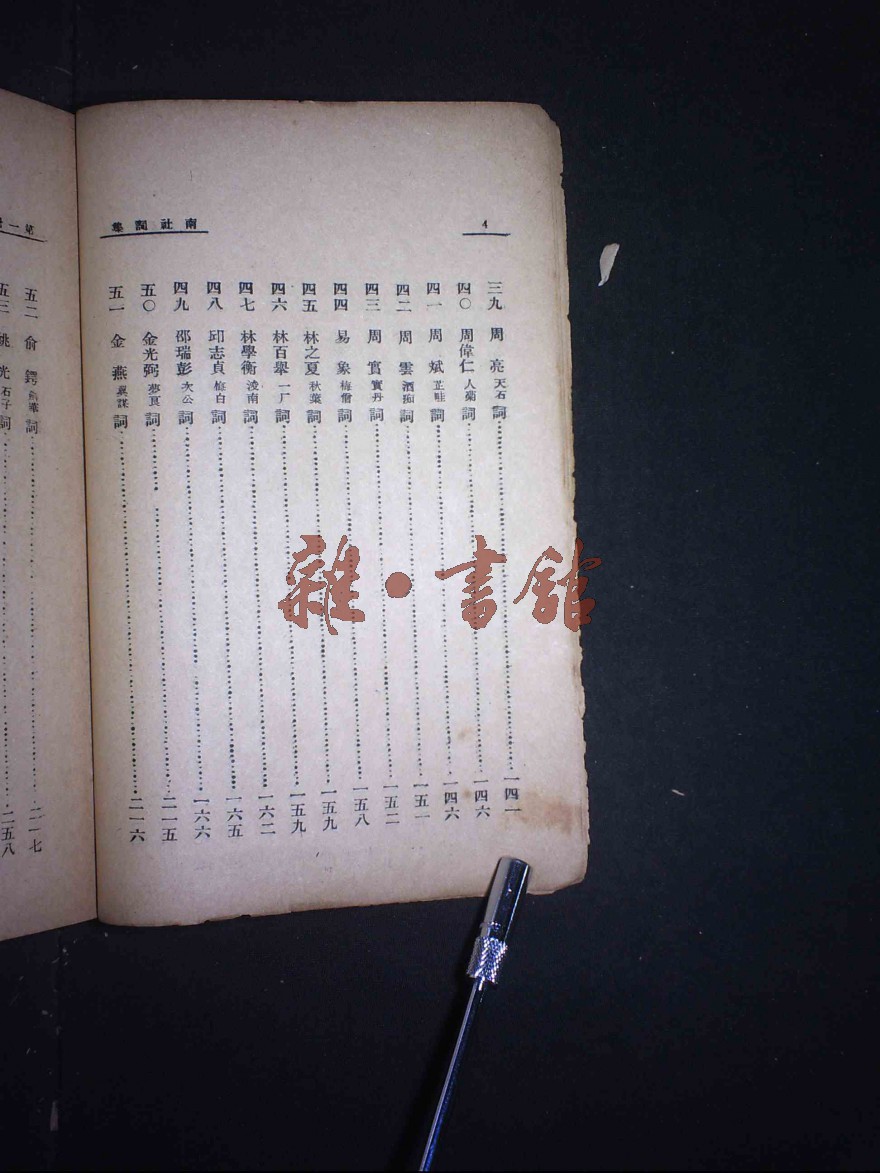 4
南社詞集
三九 周亮 天石 詞 一四一
四〇 周偉仁 人菊 詞 一四六
四一 周斌 芷畦 詞 一四六
四二 周雲 酒痴 詞 一五一
四三 周實 實丹 詞 一五二
四四 易象 梅僧 詞 一五八
四五 林之夏 秋葉 詞 一五九
四六 林百舉 一厂 詞 一五九
四七 林學衡 浚南 詞 一六二
四八 邱志貞 梅白 詞 一六五
四九 邵瑞彭 次公 詞 一六六
五〇 金光弼 夢良 詞 二一五
五一 金燕 翼謀 詞 二一六
第一
五二 俞鍔 劍華 詞 二一七
五三 姚光 石子 詞 二五八
雜·書館